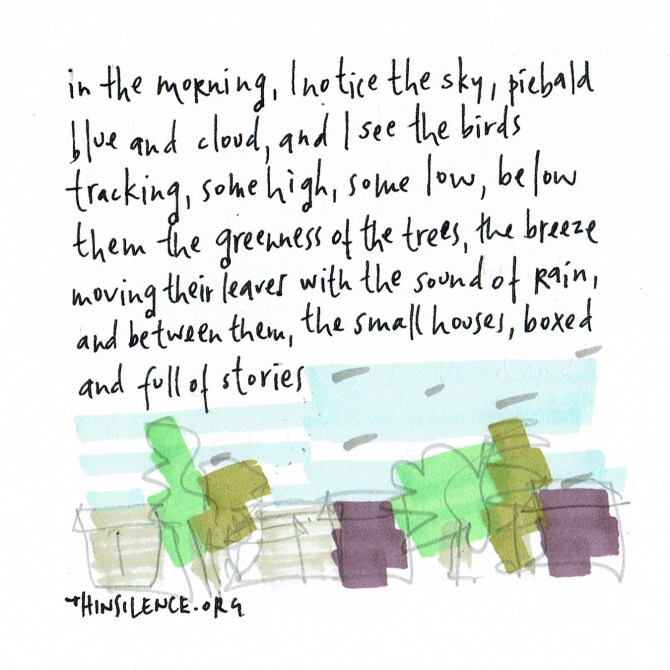 in the morning, I notice the sky, piebald
blue and cloud, and I see the birds
tracking, some high, some low, below
them the greenness of the trees, the breeze
moving their leaves with the sound of rain,
and between them, the small houses, boxed
and full of stories
THINSILENCE.ORG